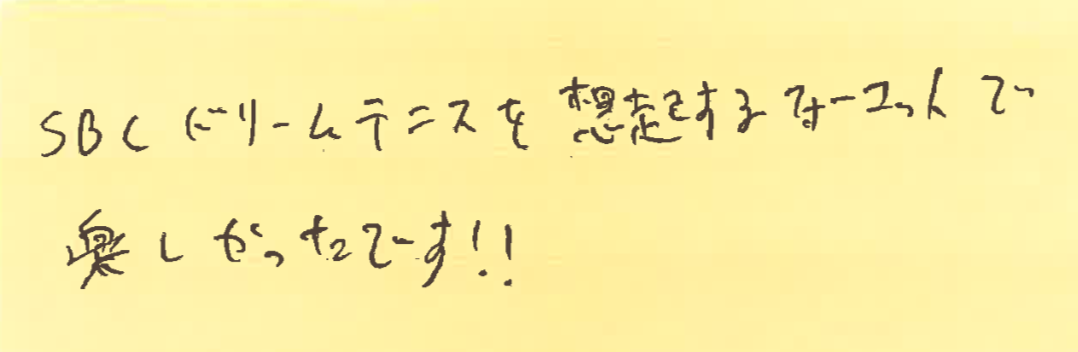 SBCドリームテニスを想起するフォーマットで
楽しかったです!!